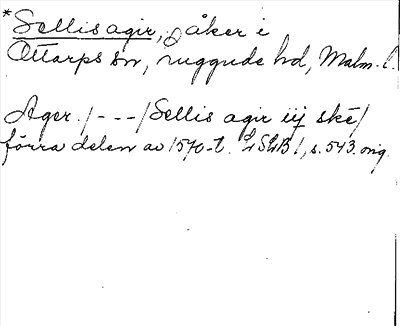 *Sellis agir, åker i
Ottarps sn, ruggude hd, Malm. l.
Ager. /---/ Sellis agir iij ske/
förra delen av 1570-t. LSLB 1, s. 543. orig.